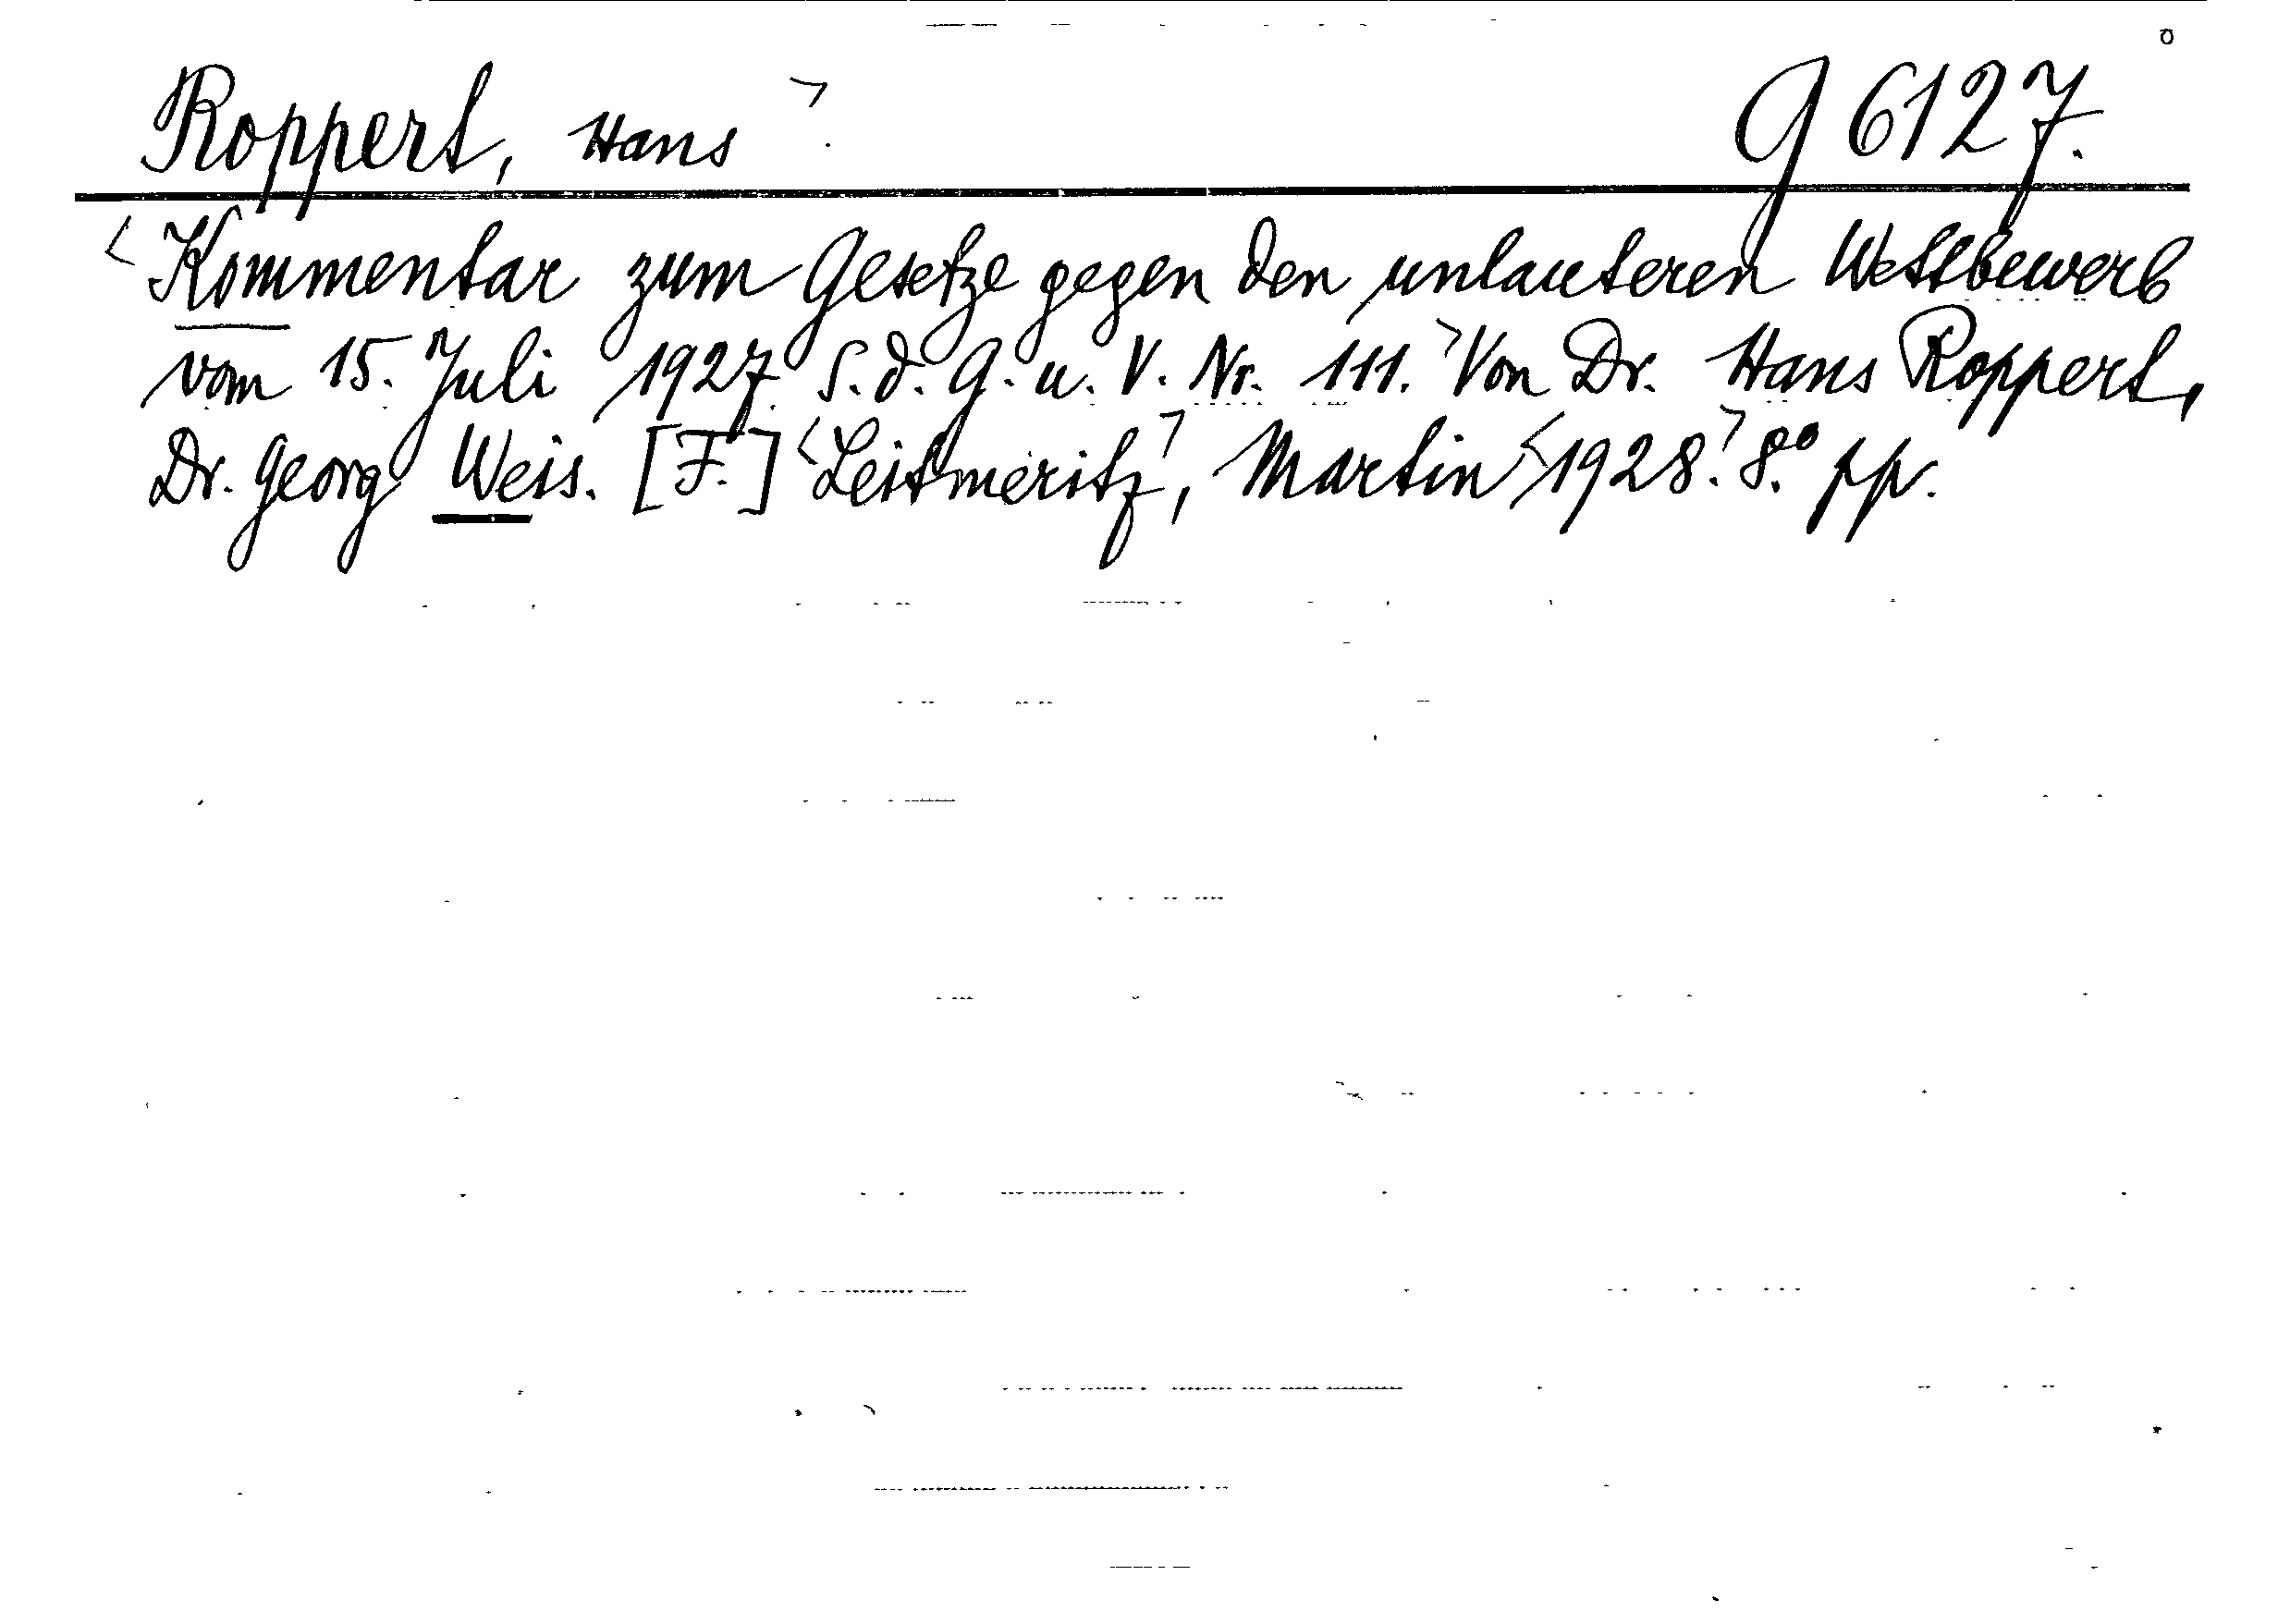 Roppert, Hans ⟩. G 6127.
⟨Kommentar zum Gesetze gegen den unlauteren Wettbewerb
vom 15. Juli 1927 S. d. G. u. V. Nr. 111.⟩ Von Dr. Hans Roppert,
Dr. Georg Weis. [F.] ⟨Leitmeritz⟩, Martin ⟨1928.⟩ 8.° pp.